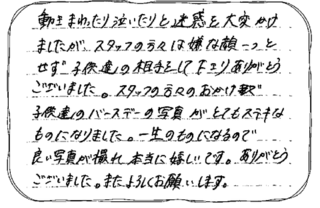 動きまわたり泣いたりと迷惑を大変かけ
ましたが、スタッフの方々は嫌な顔一つと
せず子供達の相手をして下さりありがとう
ございました。スタッフの方々のおかげで
子供達のバースデーの写真がとてもステキな
ものになりました。一生のものになるので
良い写真が撮れ本当に嬉しいです。ありがとう
ございました。またよろしくお願いします。